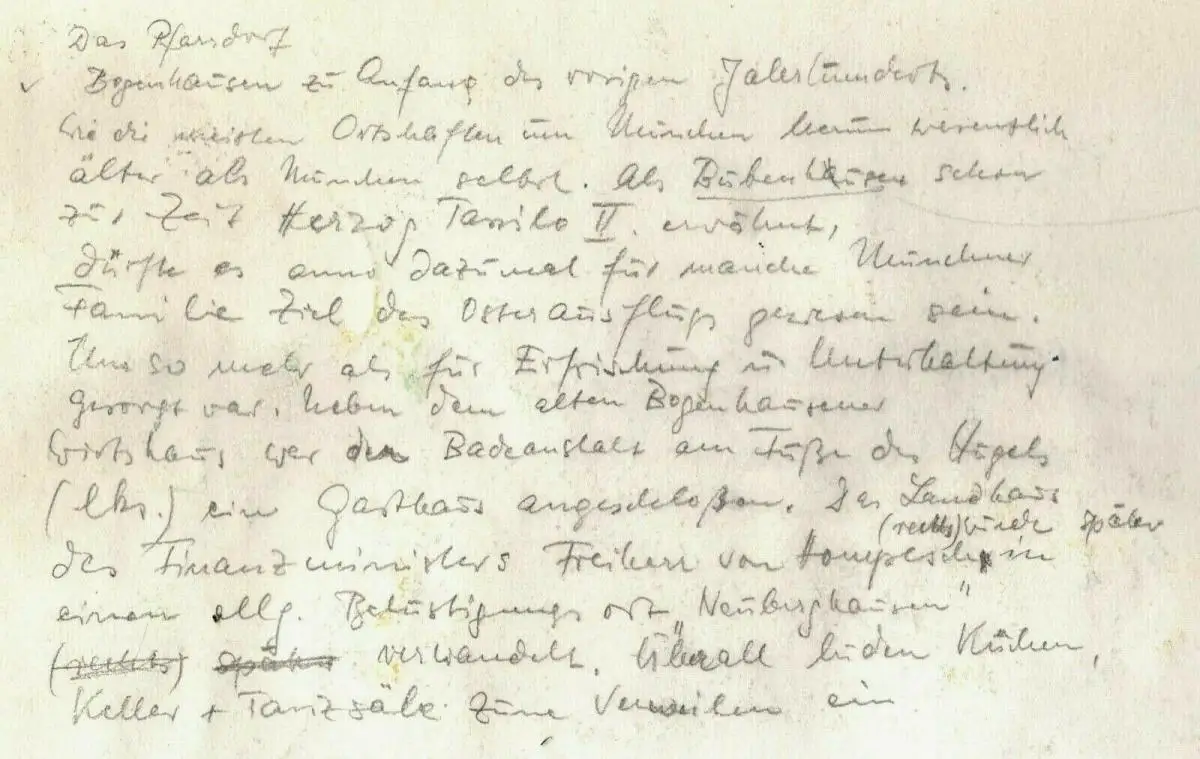 Das Pfarrdorf
Bogenhausen zu Anfang des vorigen Jahrhunderts.
Wie die meisten Ortschaften um München herum wesentlich
älter als München selbst. Als Bubenhausen schon
zur Zeit Herzog Tassilo II. erwähnt,
dürfte es anno dazumal für manche Münchner
Familie Ziel des Osterausflugs gewesen sein.
Um so mehr als für Erfrischung u Unterhaltung
gesorgt war. Neben dem alten Bogenhausener
Wirtshaus war der Badeanstalt am Fuße des Hügels
(lks.) ein Gasthaus angeschloßen. Das Landhaus
(rechts) wurde später
des Finanzministers Freiherr von Hompesch in
einen allg. Belustigungsort „Neuberghausen"
(rechts) später verwandelt. Überall luden Küchen,
Keller + Tanzsäle zum Verweilen ein